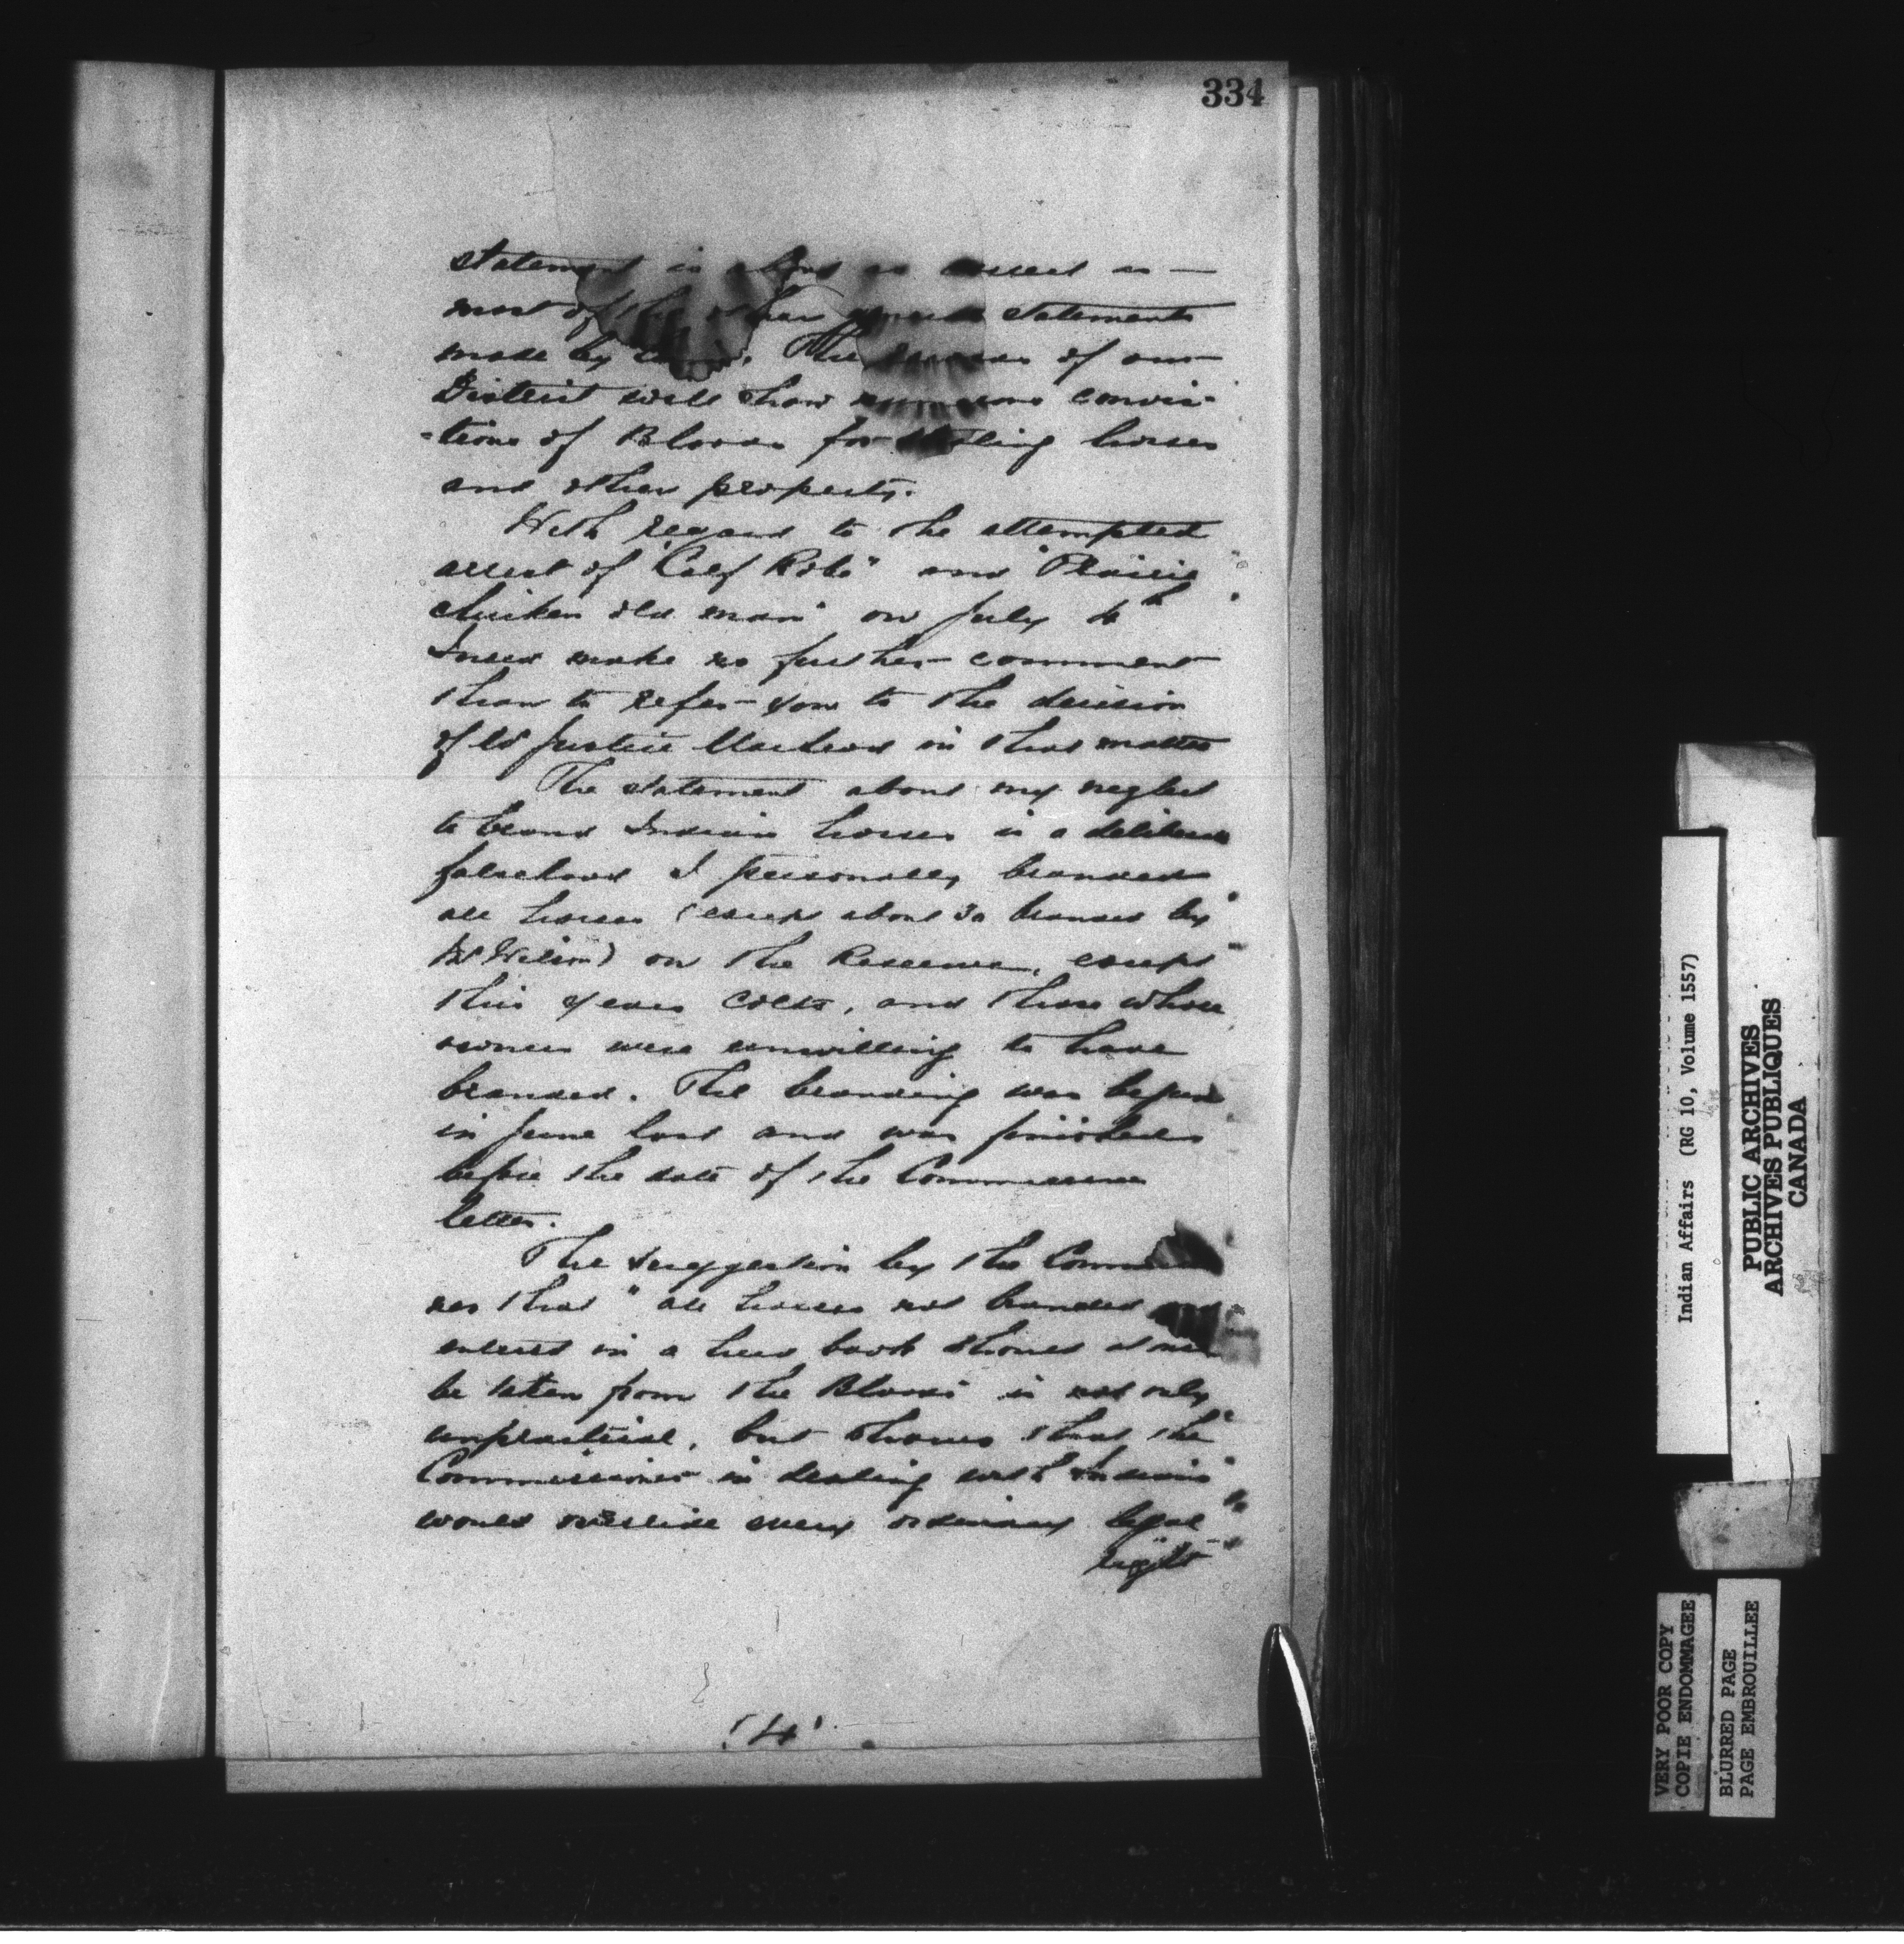 334
statement is about as correct as —
most of the other statements
made by The of our
District will show numerous convic-
-tions of Bloods for stealing horses
and other property.
With regard to the attempted
arrest of "Calf Robe" and "Prairie
chicken old man" on July 4th
I need make no further comment
than to refer you to the decision
of Mr Justice Macleod in that matter
The statement about my neglect
to brand Indian horses is a deliberate
falsehood I personally branded
all horses (except about 30 branded by
Mr Wilson) on the Reserve, except
this years colts, and those whose
owners were unwilling to have
branded. The branding was begun
in June last and was finished
before the date of the Commissioners
letter.
The suggestion by the
ner that "all horses not branded and
entered in a herd book should at once
be taken from the Bloods" is not only
unpractical, but shows that the
Commissioner in dealing with Indians
would override every ordinary legal
right
14
Indian Affairs (RG 10, Volume 1557)
PUBLIC ARCHIVES
ARCHIVES PUBLIQUES
CANADA
VERY POOR COPY
COPIE ENDOMMAGEE
BLURRED PAGE
PAGE EMBROUILLEE